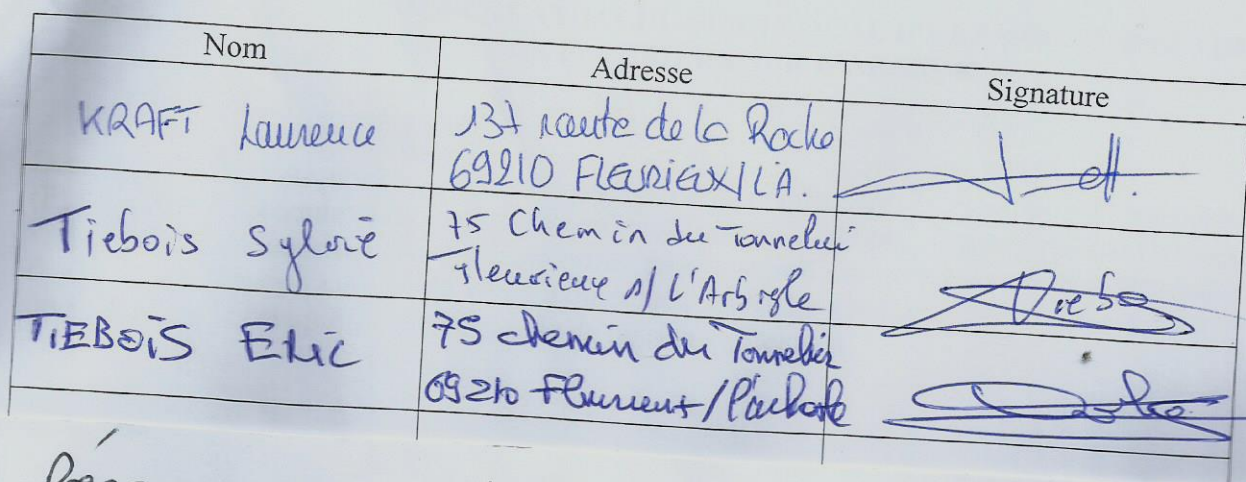 Nom Adresse Signature
KRAFT Laurence 137 route de la Roche
69210 FLEURIEUX/L'A.
Tiebois Sylvie 75 Chemin du Tonnelier
Fleurieux s/ L'Arbresle
TIEBOIS Eric 75 chemin du Tonnelier
69210 Fleurieux/l'arbresle